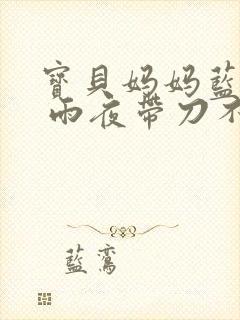 寶貝媽媽藍
雨夜帶刀不
藍鸞